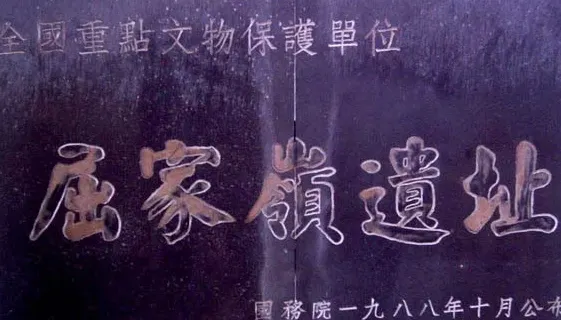 全國重點文物保護單位
屈家嶺遺址
國務院一九八八年十月公布